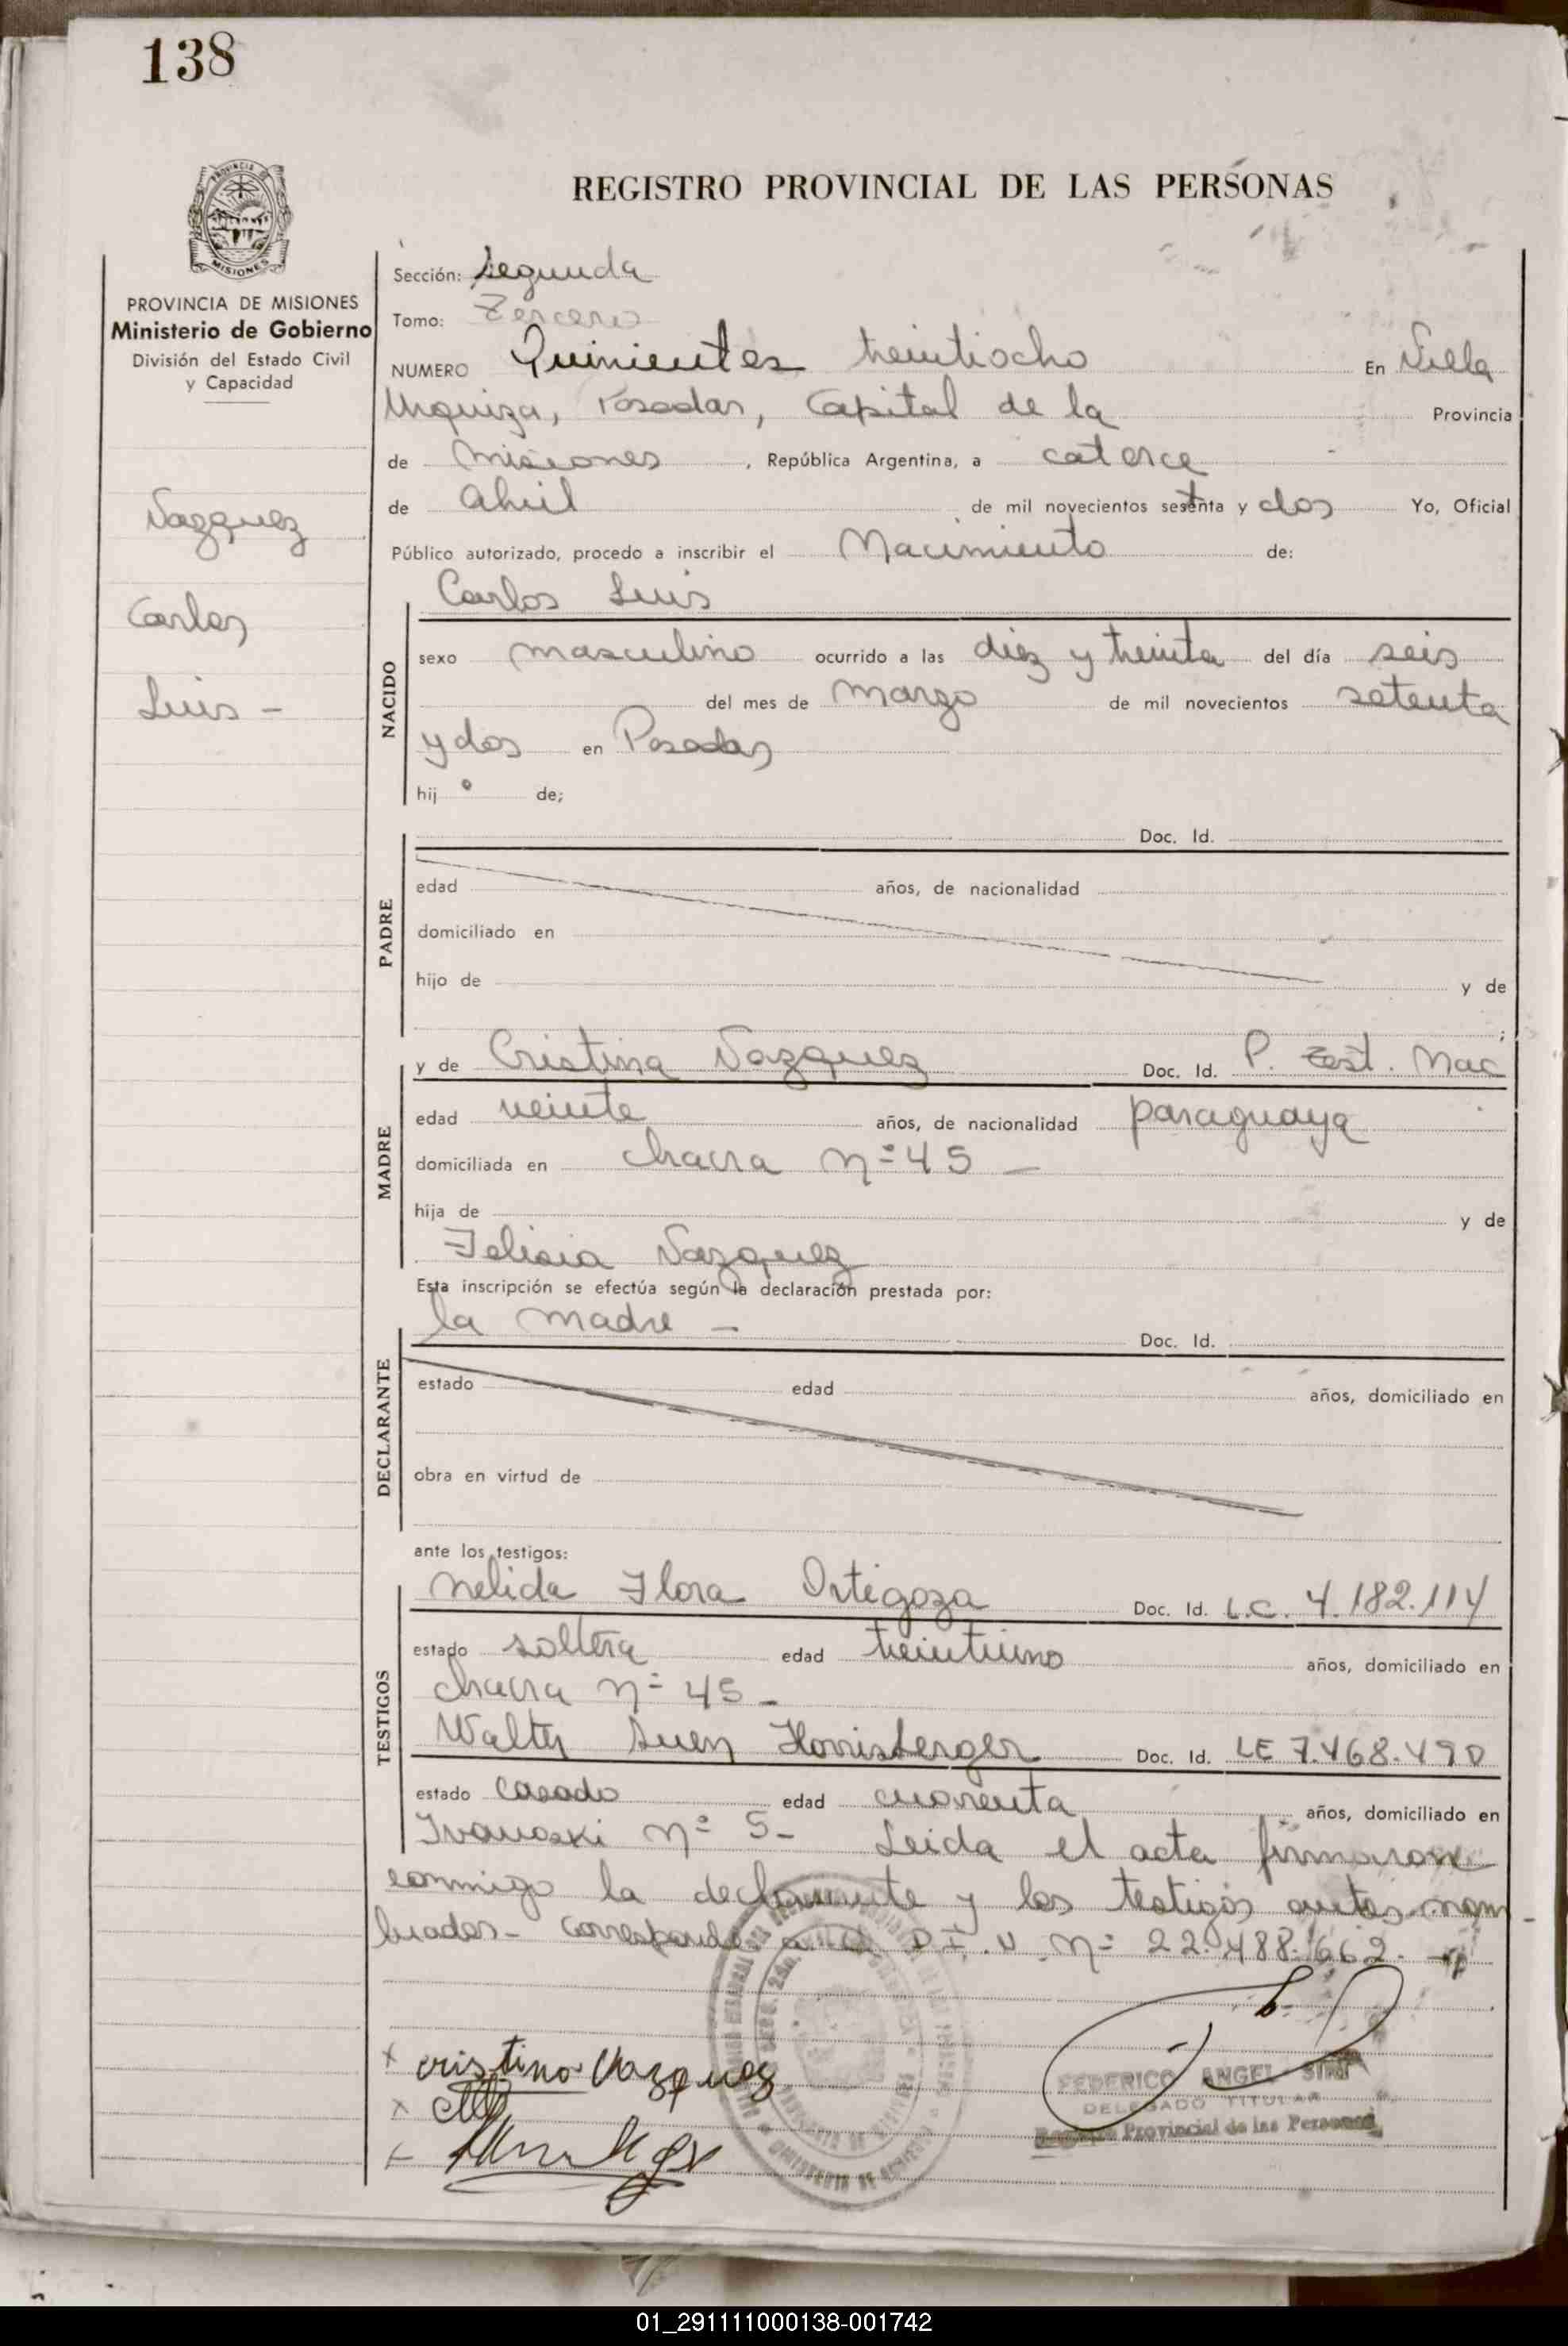 138
REGISTRO PROVINCIAL DE LAS PERSONAS
PROVINCIA DE
MISIONES
PROVINCIA DE MISIONES
Ministerio de Gobierno
División del Estado Civil
y Capacidad
Vazquez
Carlos
Luis -
Sección: Segunda
Tomo: Tercero
NUMERO Quinientos treintiocho En Villa
Urquiza, Posadas, Capital de la Provincia
de Misiones, República Argentina, a catorce
de Abril de mil novecientos setenta y dos Yo, Oficial
Público autorizado, procedo a inscribir el Nacimiento de:
Carlos Luis
NACIDO
sexo masculino ocurrido a las diez y treinta del día seis
del mes de marzo de mil novecientos setenta
y dos en Posadas
hijo de;
PADRE
Doc. Id.
edad años, de nacionalidad
domiciliado en
hijo de y de
;
MADRE
y de Cristina Vazquez Doc. Id. P. Test. Nac
edad veinte años, de nacionalidad paraguaya
domiciliada en chacra nº 45 -
hija de y de
Felisia Vazquez
Esta inscripción se efectúa según la declaración prestada por:
la madre - Doc. Id.
DECLARANTE
estado edad años, domiciliado en
obra en virtud de
ante los testigos:
TESTIGOS
Nelida Flora Ortigoza Doc. Id. L.C. 4.182.114
estado soltera edad treintiuno años, domiciliado en
chacra nº 45 -
Walter Suen Horrisberger Doc. Id. LE 7.468.490
estado casado edad cuarenta años, domiciliado en
Ivanoski nº 5 - Leida el acta firmaron
conmigo la declarante y los testigos antes nom-
brados - corresponde a la D.I.U. nº 22.488.662. -
x cristina Vazquez
x
FEDERICO ANGEL
DELEGADO TITULAR
Registro Provincial de las Personas
01_291111000138-001742